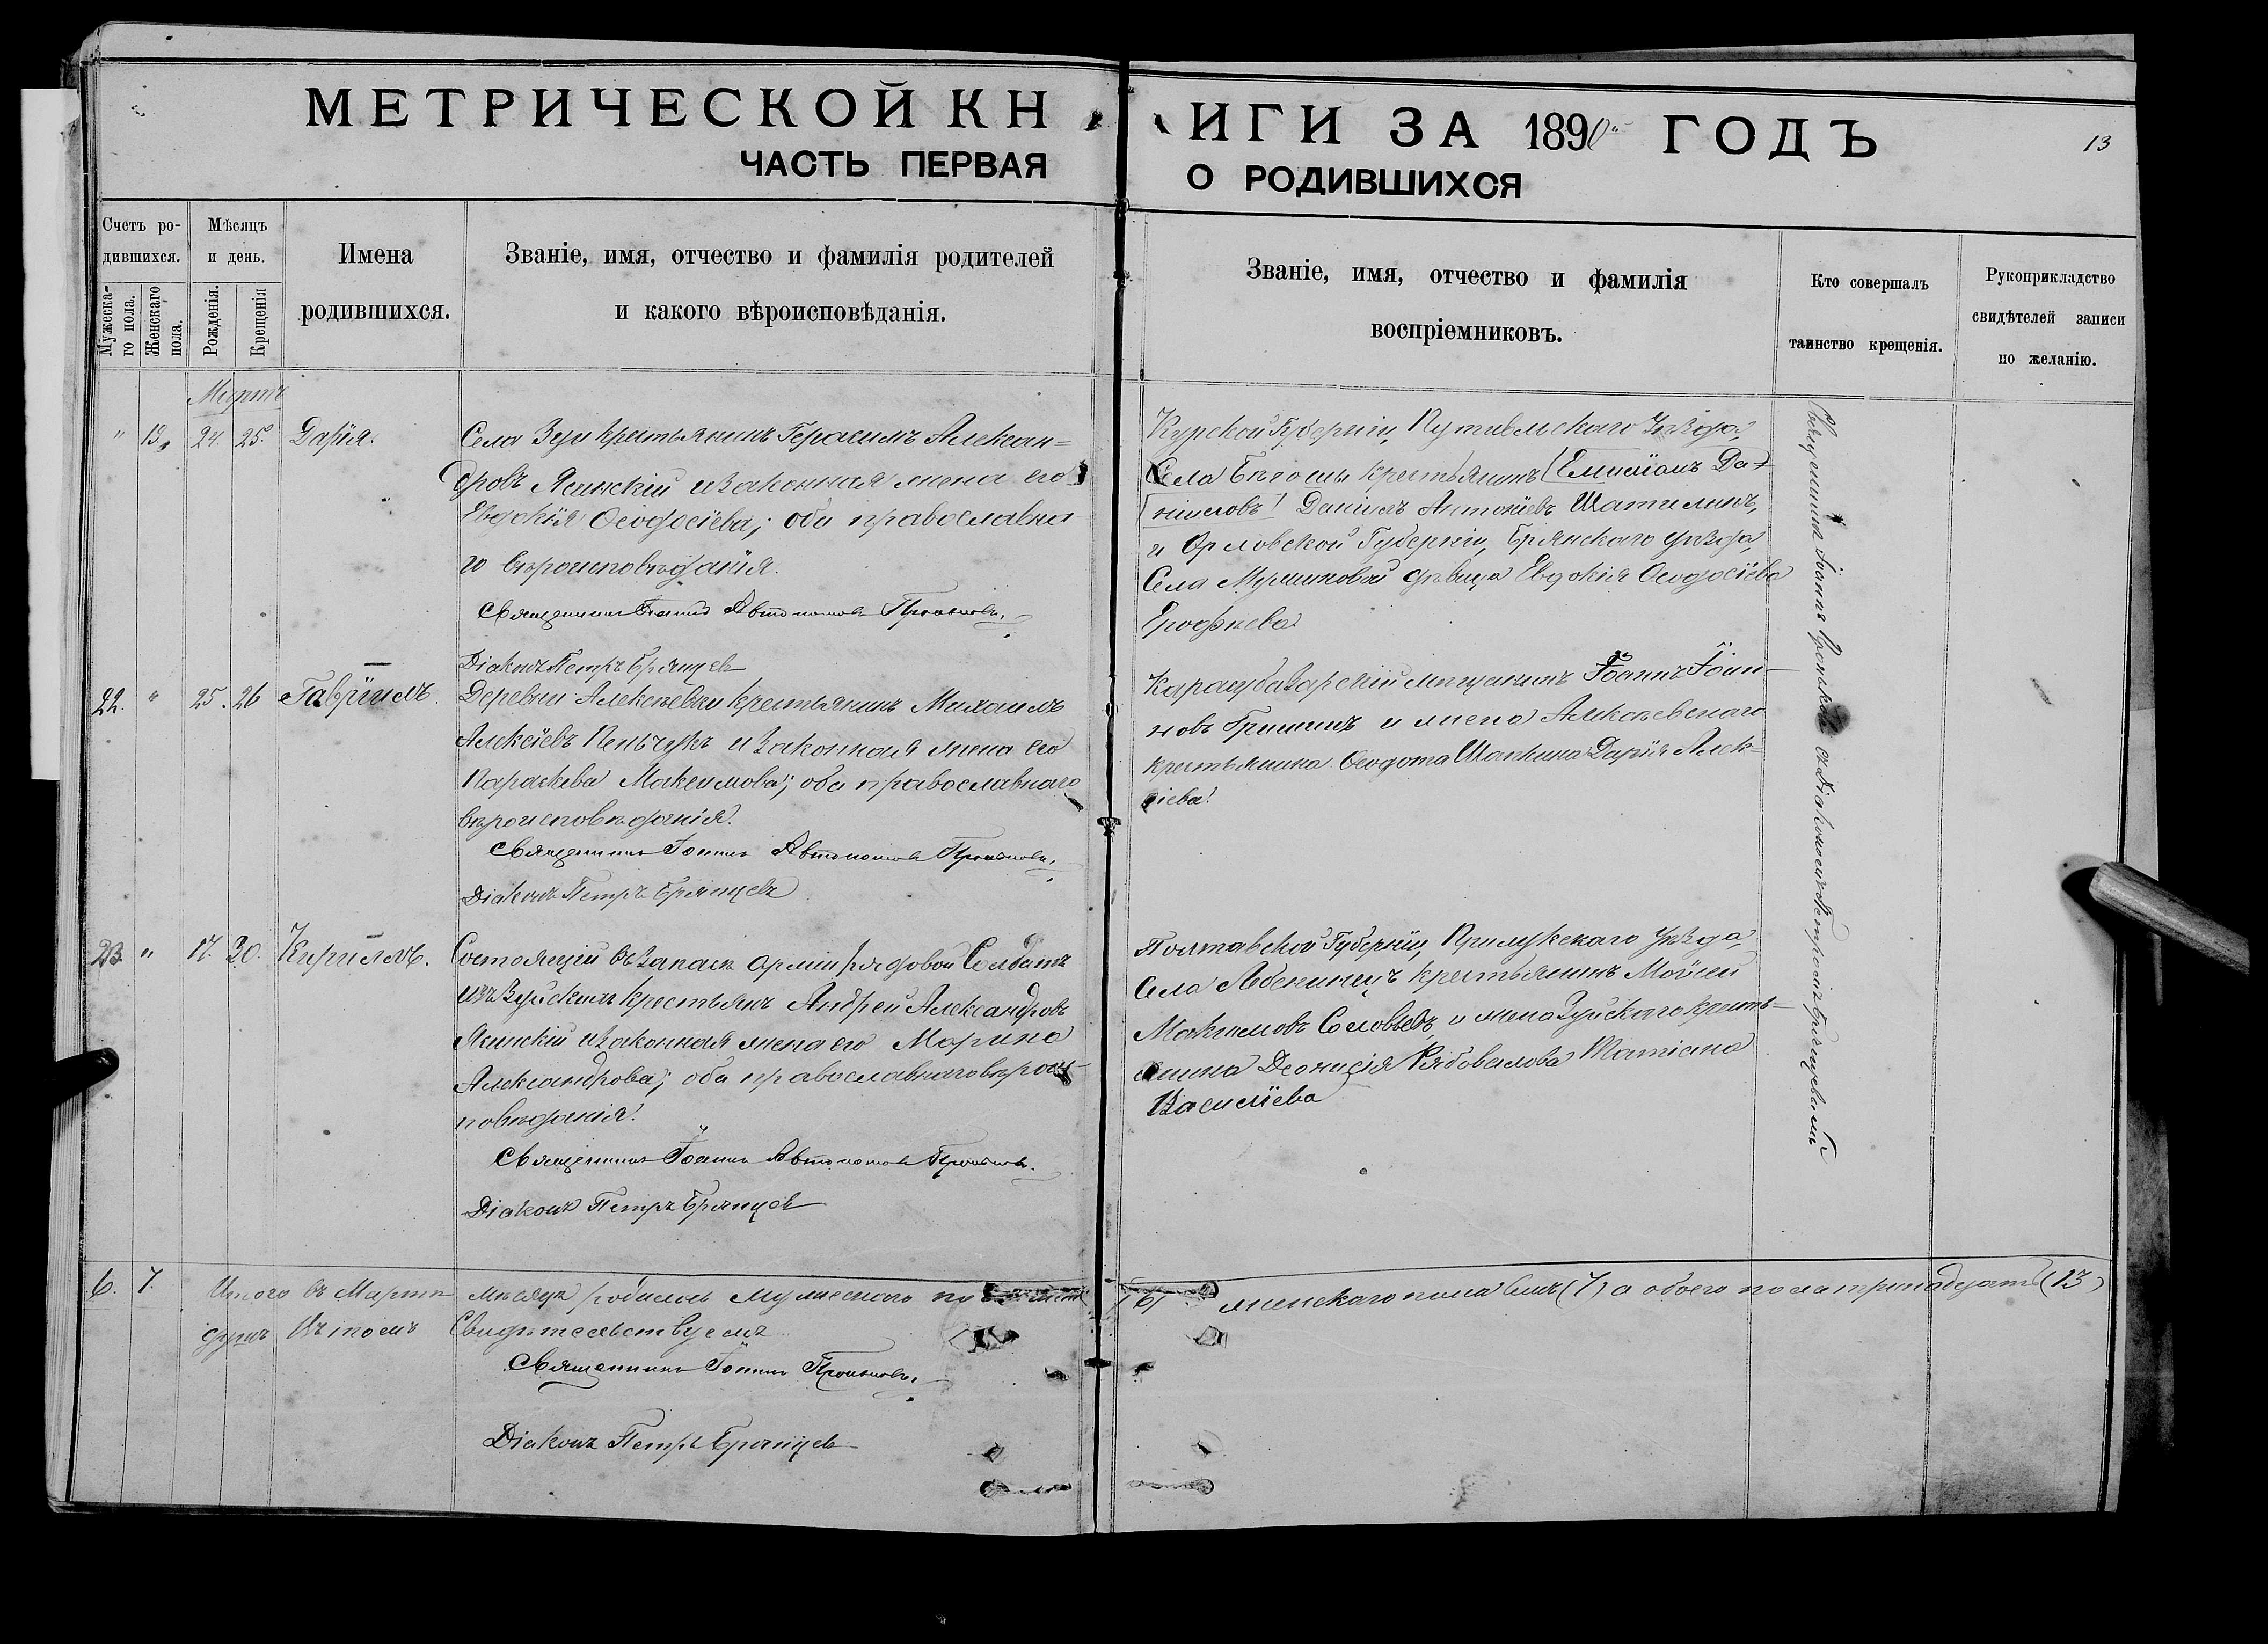 МЕТРИЧЕСКОЙ КНИГИ ЗА 1890 ГОДЪ
13
ЧАСТЬ ПЕРВАЯ О РОДИВШИХСЯ
Счетъ ро-
дившихся.
Мужеска-
го пола.
Женскаго
пола.
Мѣсяцъ
и день.
Рожденія.
Крещенія
Имена
родившихся.
Званіе, имя, отчество и фамилія родителей
и какого вѣроисповѣданія.
Званіе, имя, отчество и фамилія
воспріемниковъ.
Кто совершалъ
таинство крещенія.
Рукоприкладство
свидѣтелей записи
по желанію.
Мартъ
" 19. 24. 25. Дарія.
Села Зуи крестьянинъ Герасимъ Алексан=
дровъ Ясинскій и законная жена его
Евдокія Ѳеодосіева; оба православна
го вѣроисповѣданія.
Священникъ Іоаннъ Автономовъ
Діаконъ Петръ Брянцевъ
Курской Губерніи, Путивльскаго Уѣзда,
Села крестьянинъ (Емиліанъ Да-
ніиловъ) Даніилъ Антоніевъ Шатилинъ,
и Орловской Губерніи, Брянскаго уѣзда,
Села дѣвица Евдокія Ѳеодосіева
Ерофѣева.
22. " 25. 26 Гавріилъ.
Деревни Алексѣевки крестьянинъ Михаилъ
Алексіевъ и законная жена его
Параскева Максимова; оба православнаго
вѣроисповѣданія.
Священникъ Іоаннъ Автономовъ
Діаконъ Петръ Брянцевъ
Карасубазарскій мѣщанинъ Іоаннъ Іоан-
новъ Гришинъ и жена Алексѣевскаго
крестьянина Ѳеодота Шапкина Дарія Алек-
сіева.
23 " 17. 30. Кириллъ.
Состоящій въ запасѣ арміи рядовой Солдатъ
изъ Зуйскихъ крестьянъ Андрей Александровъ
Ясинскій и законная жена его Марина
Александрова; оба православнаго вѣроис-
повѣданія.
Священникъ Іоаннъ Автономовъ
Діаконъ Петръ Брянцевъ
Полтавской Губерніи, Прилукскаго Уѣзда,
Села крестьянинъ Моисей
Максимовъ Соловьевъ, и жена Зуйскаго кресть-
янина Діонисія Рябовалова Татіана
Василіева
Священникъ Іоаннъ съ Діакономъ Петромъ Брянцевымъ
6. 7. Итого въ Мартѣ мѣсяцѣ родилось мужескаго по (6) женскаго пола семь (7) а обоего пола тринадцать (13)
душъ Въ томъ Свидѣтельствуемъ
Священникъ Іоаннъ
Діаконъ Петръ Брянцевъ